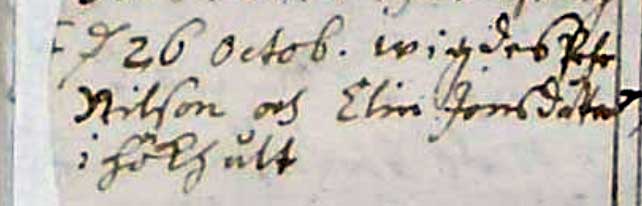 d 26 octob. wigdes Pehr
Nilson och Elin Jönsdotter
i Hökhult